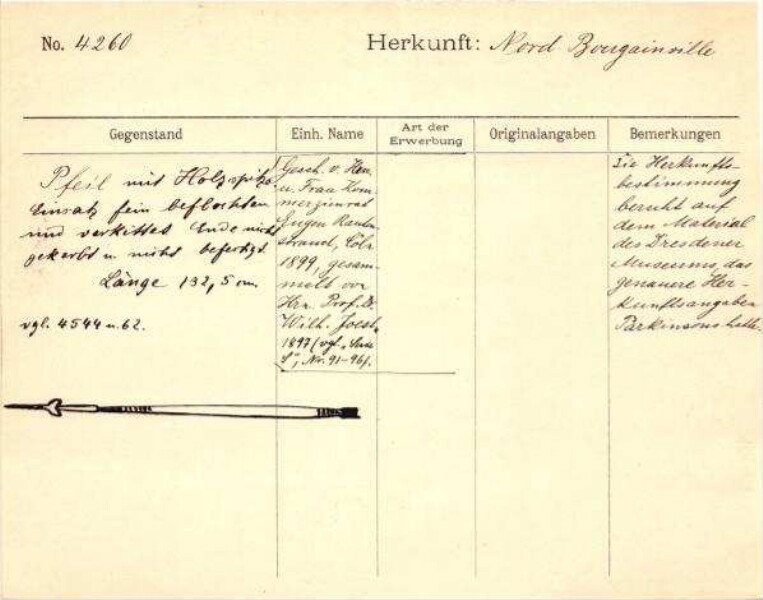 No. 4260
Herkunft: Nord Bougainville
Gegenstand
Einh. Name
Art der Erwerbung
Originalangaben
Bemerkungen
Pfeil mit Holzspitze
Einsatz fein beflochten
und verkittet Ende nicht
gekerbt u. nicht befestigt.
Länge 132,5 cm.
vgl. 4544 u. 62.
Gesch. v. Hrn.
u. Frau Kom-
merzienrat
Eugen Rauten-
strauch, Cöln
1899, gesam-
melt von
Hrn. Prof. Dr.
Wilh. Joest,
1897 (vgl.
Nr. 91-96).
Die Herkunfts-
bestimmung
beruht auf
dem Material
des Dresdener
Museums, das
genauere Her-
kunftsangaben
Parkinsons hatte.